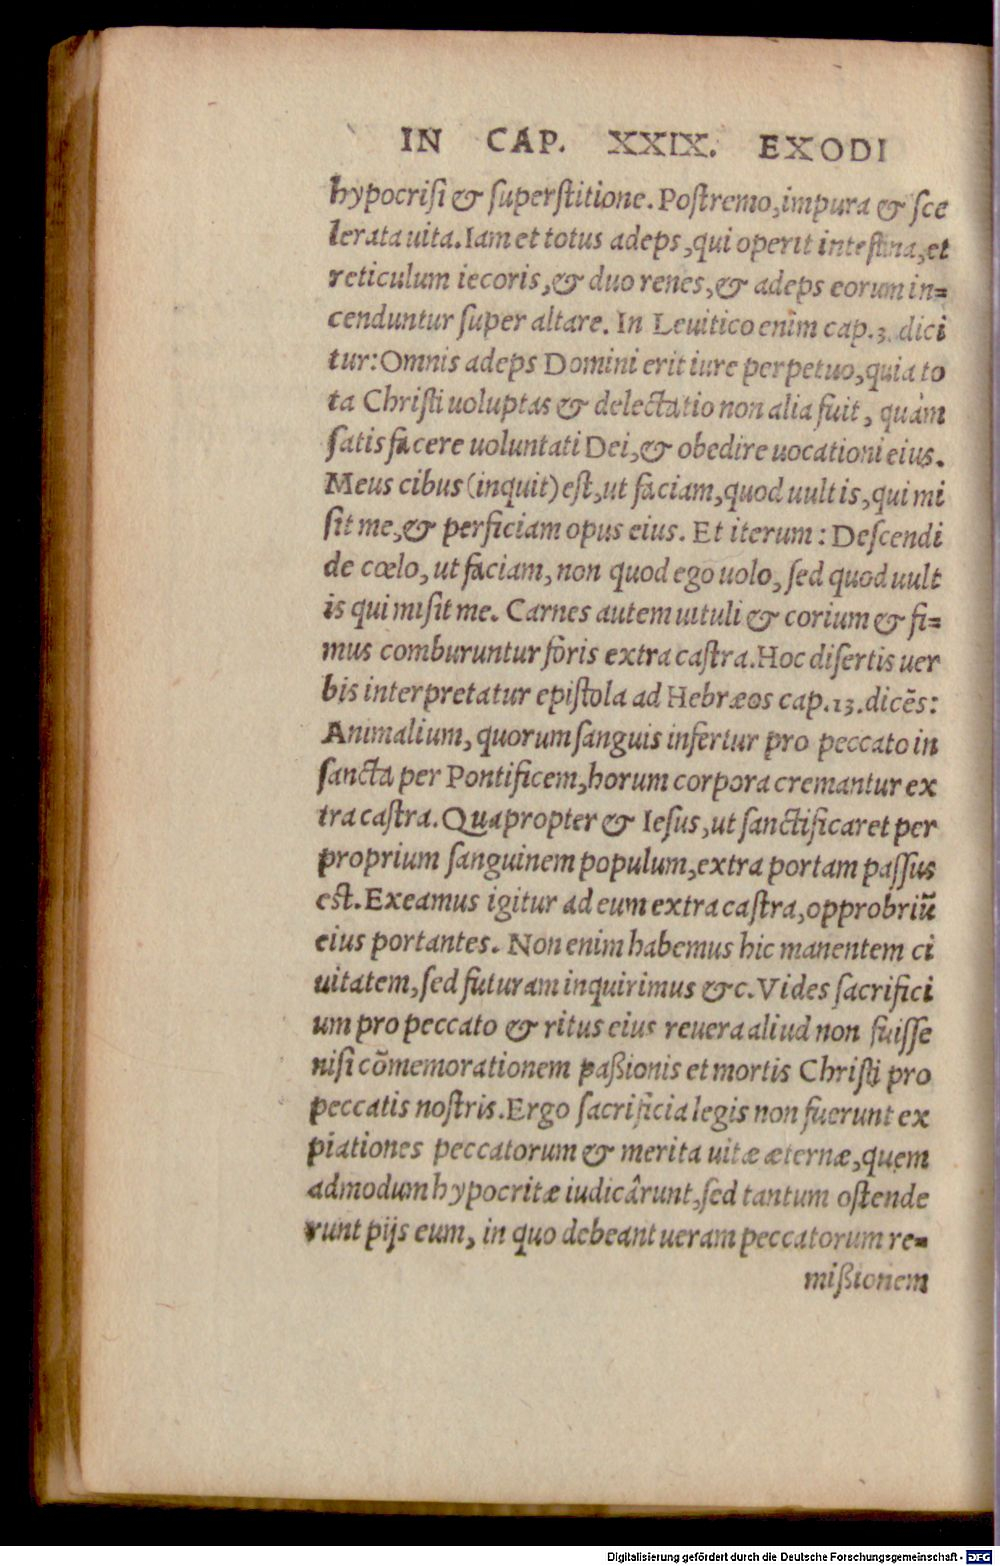 IN CAP. XXIX. EXODI
hypocriſi & ſuperſtitione. Poſtremo, impura & ſce
lerata uita. Iam et totus adeps, qui operit inteſtina, et
reticulum iecoris, & duo renes, & adeps eorum in=
cenduntur ſuper altare. In Leuitico enim cap. 3. dici
tur: Omnis adeps Domini erit iure perpetuo, quia to
ta Chriſti uoluptas & delectatio non alia fuit, quàm
ſatisfacere uoluntati Dei, & obedire uocationi eius.
Meus cibus (inquit) eſt, ut faciam, quod uult is, qui mi
ſit me, & perficiam opus eius. Et iterum: Deſcendi
de cœlo, ut faciam, non quod ego uolo, ſed quod uult
is qui miſit me. Carnes autem uituli & corium & fi=
mus comburuntur foris extra caſtra. Hoc diſertis uer
bis interpretatur epiſtola ad Hebræos cap. 13. dicẽs:
Animalium, quorum ſanguis infertur pro peccato in
ſancta per Pontificem, horum corpora cremantur ex
tra caſtra. Quapropter & Ieſus, ut ſanctificaret per
proprium ſanguinem populum, extra portam paſſus
eſt. Exeamus igitur ad eum extra caſtra, opprobriũ
eius portantes. Non enim habemus hic manentem ci
uitatem, ſed futuram inquirimus &c. Vides ſacrifici
um pro peccato & ritus eius reuera aliud non fuiſſe
niſi cõmemorationem paßionis et mortis Chriſti pro
peccatis noſtris. Ergo ſacrificia legis non fuerunt ex
piationes peccatorum & merita uitæ æternæ, quem
admodum hypocritæ iudicârunt, ſed tantum oſtende
runt pijs eum, in quo debeant ueram peccatorum re=
mißionem
Digitalisierung gefördert durch die Deutsche Forschungsgemeinschaft - DFG